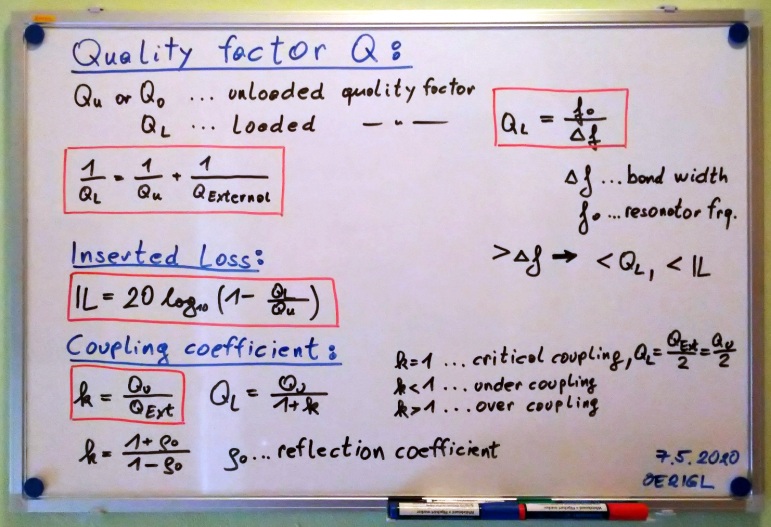 Quality factor Q:
Qu or Q0 ... unloaded quality factor
QL ... Loaded — " —
QL = f0 / Δf
1/QL = 1/Qu + 1/QExternal
Δf ... band width
f0 ... resonator frq.
>Δf → <QL, <IL
Inserted Loss:
IL = 20 log10 (1 - QL/Qu)
Coupling coefficient:
k = Qu/QExt
QL = Qu/1+k
k=1 ... critical coupling, QL = QExt/2 = Qu/2
k<1 ... under coupling
k>1 ... over coupling
k = 1+ρ0 / 1-ρ0
ρ0 ... reflection coefficient
7.5.2020
OE2IGL